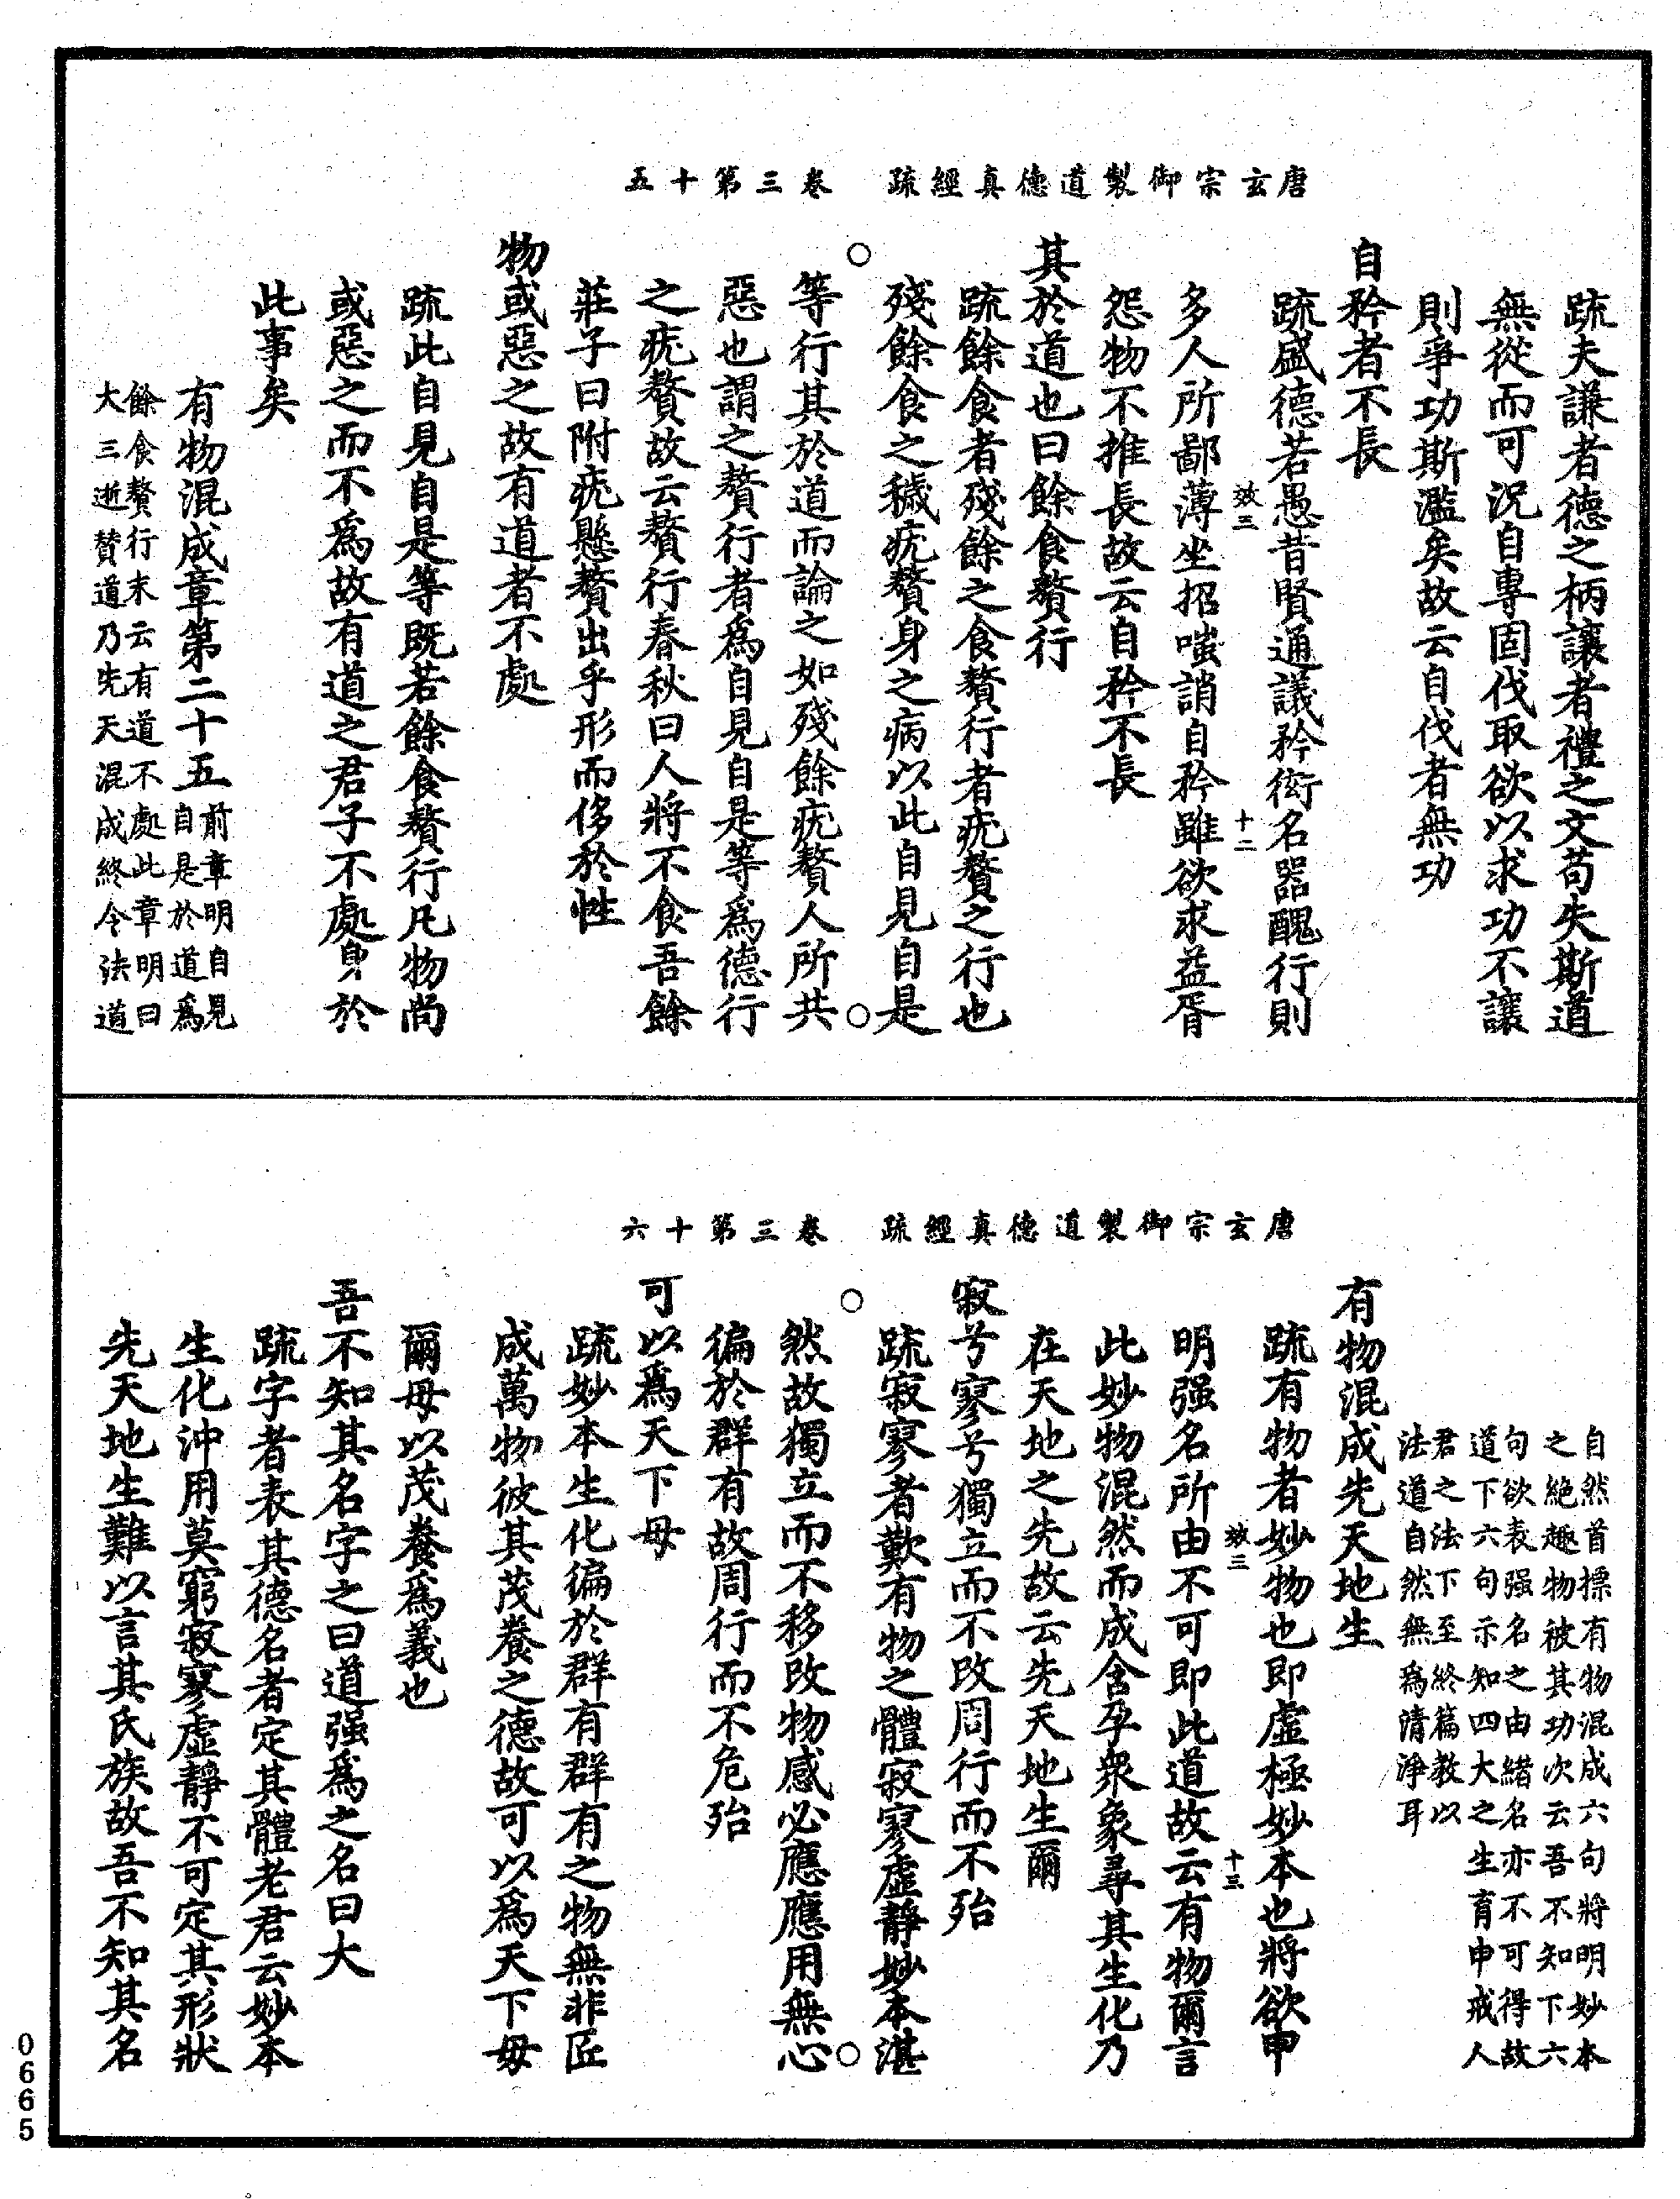 唐玄宗御製道德真經疏　卷三第十五
疏夫謙者德之柄讓者禮之文苟失斯道
無從而可況自專固伐取欲以求功不讓
則爭功斯濫矣故云自伐者無功
自矜者不長
疏盛德若愚昔賢通議矜衒名器醜行則
效三　十二
多人所鄙薄坐招嗤誚自矜雖欲求益胥
怨物不推長故云自矜不長
其於道也曰餘食贅行
疏餘食者殘餘之食贅行者疣贅之行也
殘餘食之穢疣贅身之病以此自見自是
等行其於道而論之如殘餘疣贅人所共
惡也謂之贅行者為自見自是等為德行
之疣贅故云贅行春秋曰人將不食吾餘
莊子曰附疣懸贅出乎形而侈於性
物或惡之故有道者不處
疏此自見自是等既若餘食贅行凡物尚
或惡之而不為故有道之君子不處身於
此事矣
有物混成章第二十五
前章明自見
自是於道為
餘食贅行末云有道不處此章明曰
大三逝贊道乃先天混成終令法道
唐玄宗御製道德真經疏　卷三第十六
自然首摽有物混成六句將明妙本
之絕趣物被其功次云吾不知下六
句欲表强名之由緒名亦不可得故
道下六句示知四大之生育申戒人
君之法下至終篇教以
法道自然無為清淨耳
有物混成先天地生
疏有物者妙物也即虛極妙本也將欲申
效三　十三
明强名所由不可即此道故云有物爾言
此妙物混然而成含孕衆象尋其生化乃
在天地之先故云先天地生爾
寂兮寥兮獨立而不改周行而不殆
疏寂寥者歎有物之體寂寥虛靜妙本湛
然故獨立而不移改物感必應應用無心
徧於群有故周行而不危殆
可以為天下母
疏妙本生化徧於群有群有之物無非匠
成萬物彼其茂養之德故可以為天下母
爾母以茂養為義也
吾不知其名字之曰道强為之名曰大
疏字者表其德名者定其體老君云妙本
生化沖用莫窮寂寥虛靜不可定其形狀
先天地生難以言其氏族故吾不知其名
0665